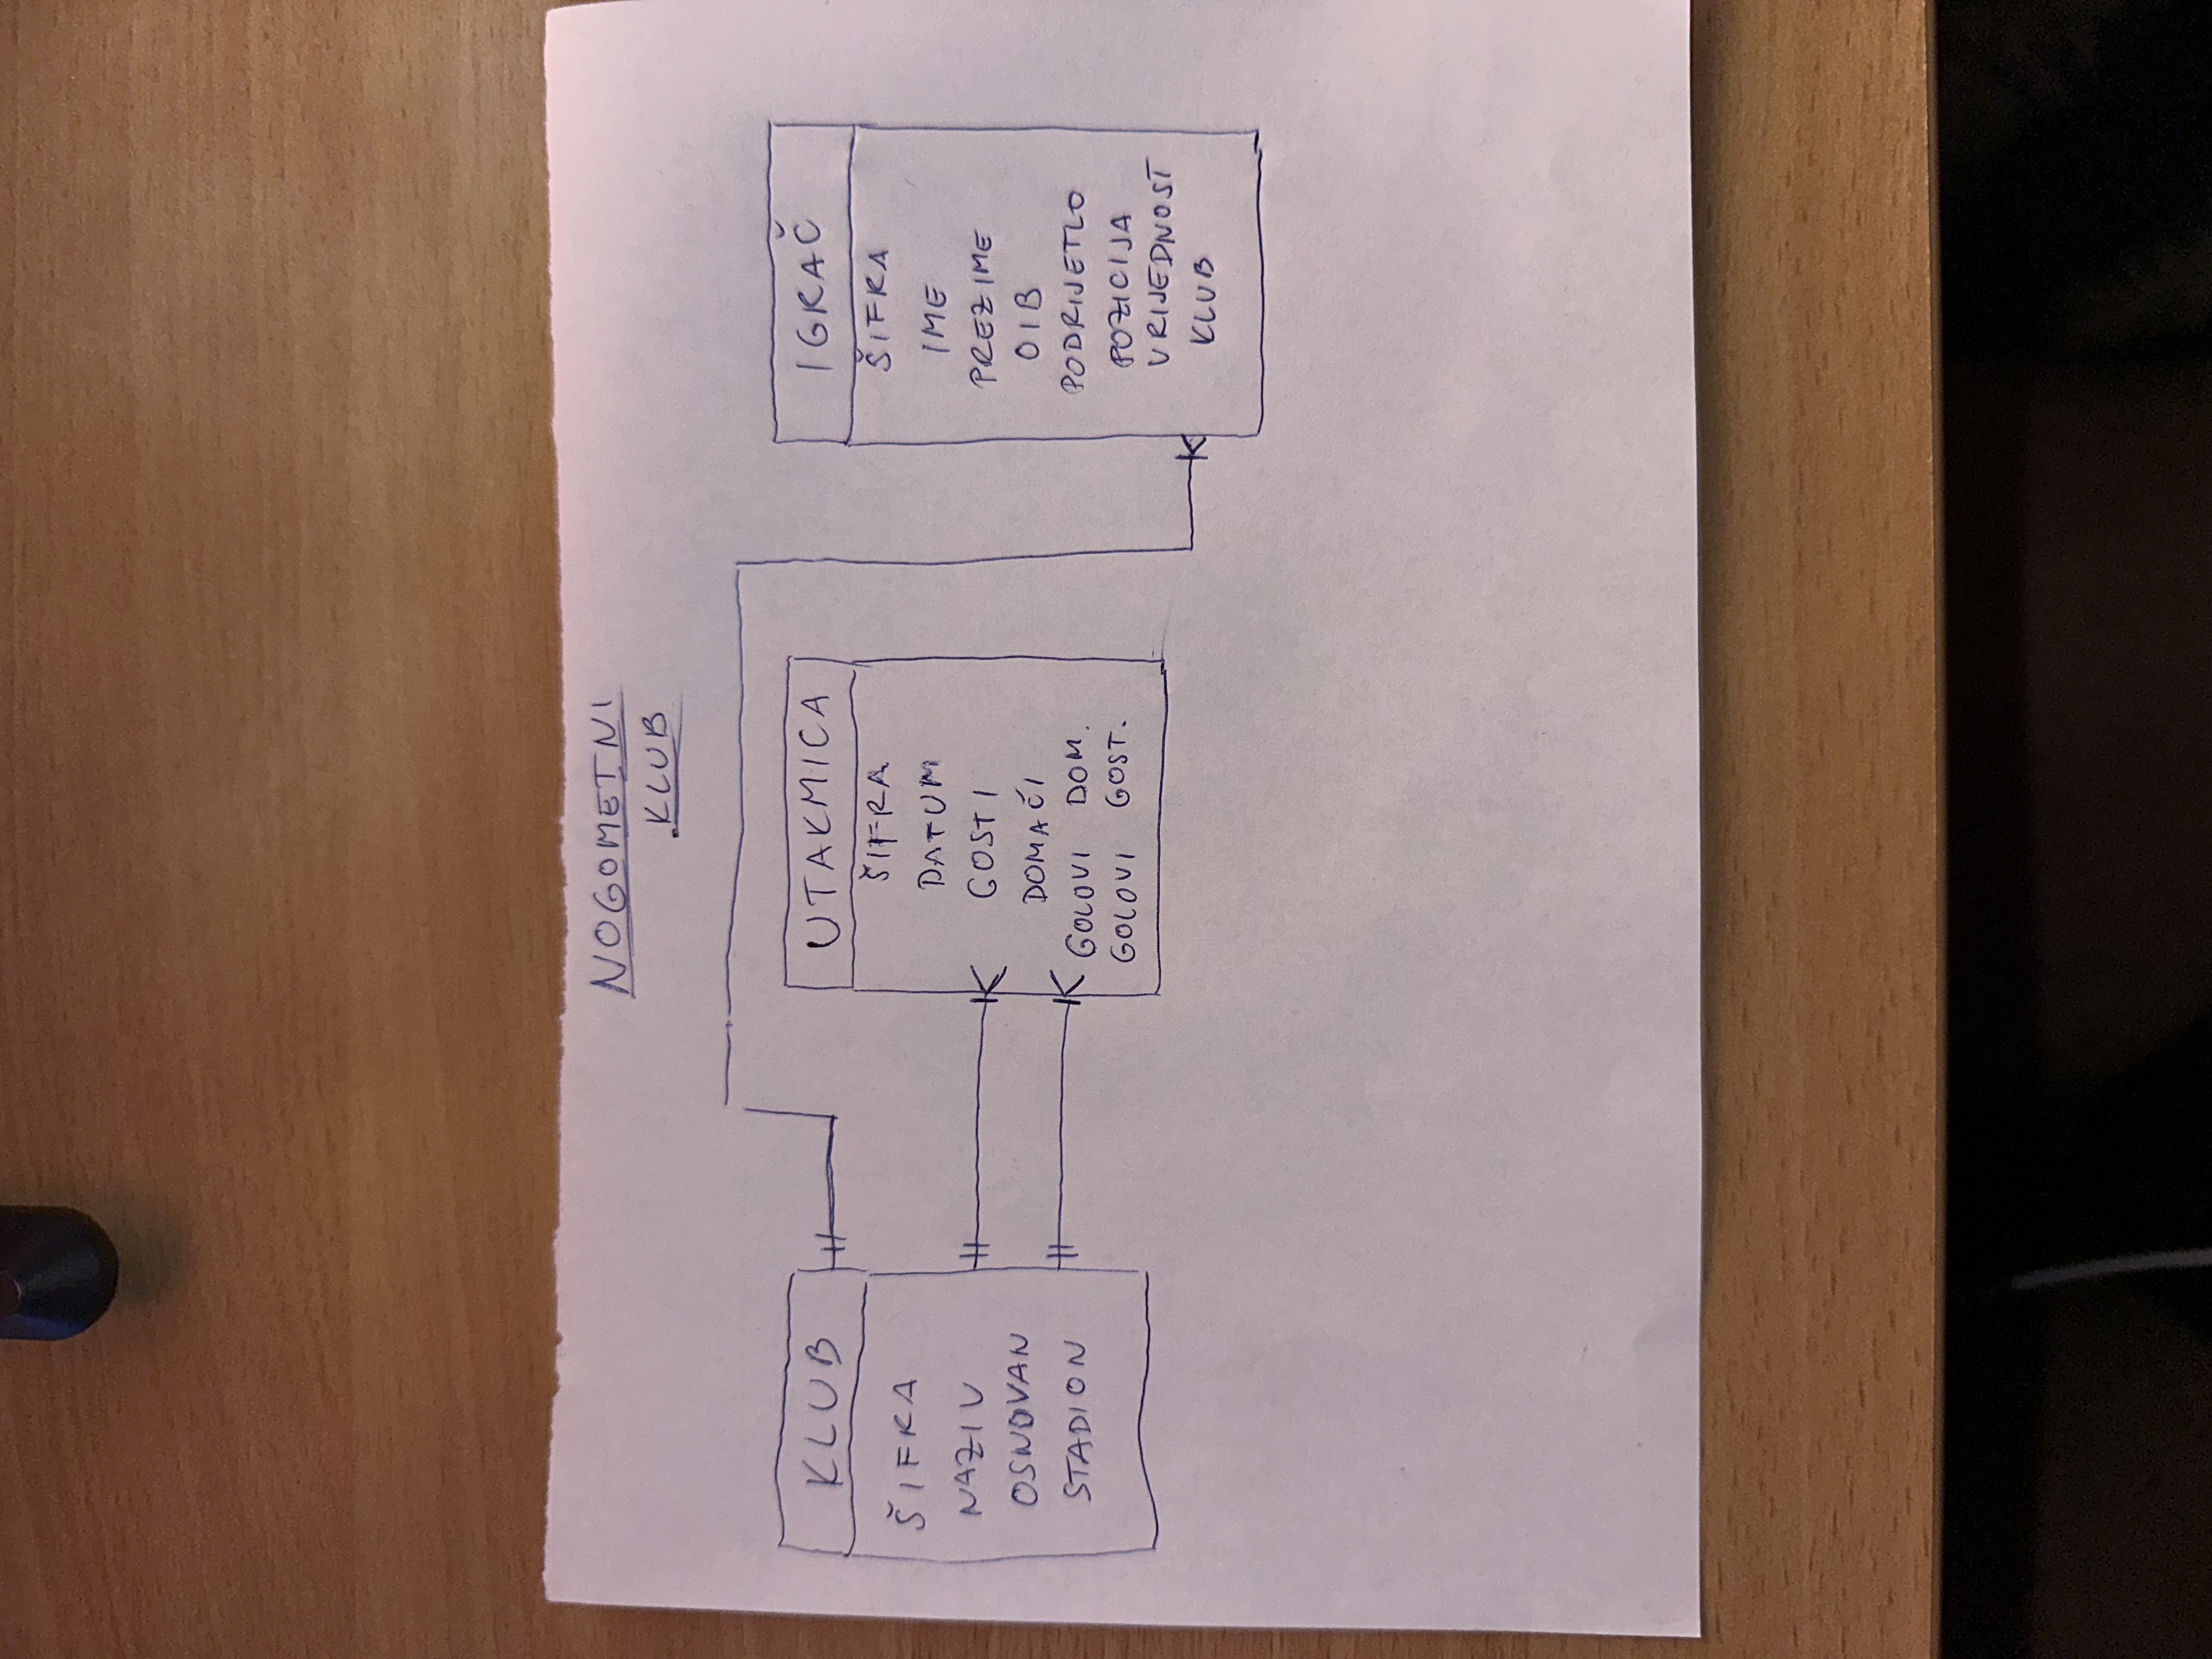 NOGOMETNI
KLUB
KLUB
ŠIFRA
NAZIV
OSNOVAN
STADION
UTAKMICA
ŠIFRA
DATUM
GOSTI
DOMAĆI
GOLOVI DOM.
GOLOVI GOST.
IGRAČ
ŠIFRA
IME
PREZIME
OIB
PODRIJETLO
POZICIJA
VRIJEDNOST
KLUB